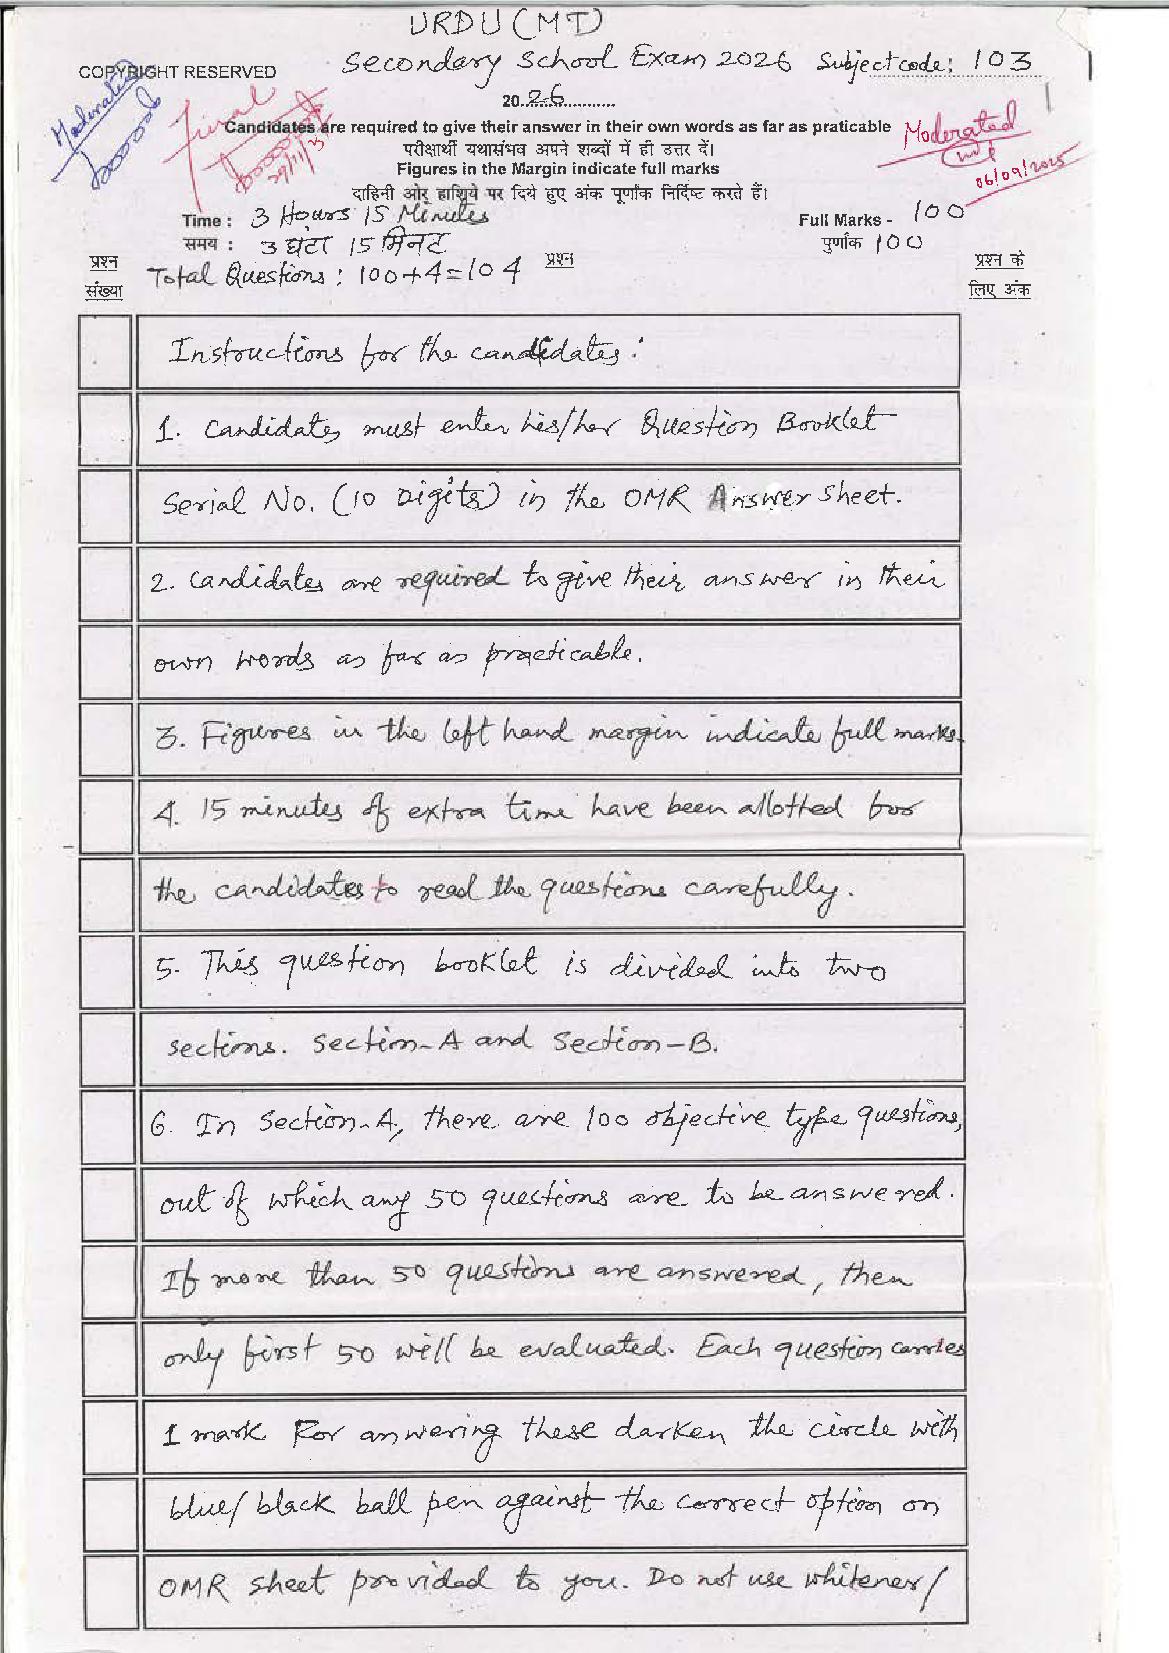 URDU (MT)
Secondary School Exam 2026 Subject code: 103
COPYRIGHT RESERVED
2026
Moderated
Final
29/11/25
Candidates are required to give their answer in their own words as far as praticable
परीक्षार्थी यथासंभव अपने शब्दों में ही उत्तर दें।
Figures in the Margin indicate full marks
दाहिनी ओर हाशिये पर दिये हुए अंक पूर्णांक निर्दिष्ट करते हैं।
Moderated
06/09/2025
Time : 3 Hours 15 Minutes
Full Marks - 100
समय : 3 घंटा 15 मिनट
पुर्णांक 100
प्रश्न संख्या
Total Questions : 100+4=104
प्रश्न
प्रश्न के लिए अंक
Instructions for the candidates :
1. Candidates must enter his/her Question Booklet
Serial No. (10 Digits) in the OMR Answer Sheet.
2. Candidates are required to give their answer in their
own words as far as practicable.
3. Figures in the left hand margin indicate full marks.
4. 15 minutes of extra time have been allotted for
the candidates to read the questions carefully.
5. This question booklet is divided into two
sections. Section-A and Section-B.
6. In Section-A, there are 100 objective type questions,
out of which any 50 questions are to be answered.
If more than 50 questions are answered, then
only first 50 will be evaluated. Each question carries
1 mark For answering these darken the circle with
blue/black ball pen against the correct option on
OMR Sheet provided to you. Do not use whitener/